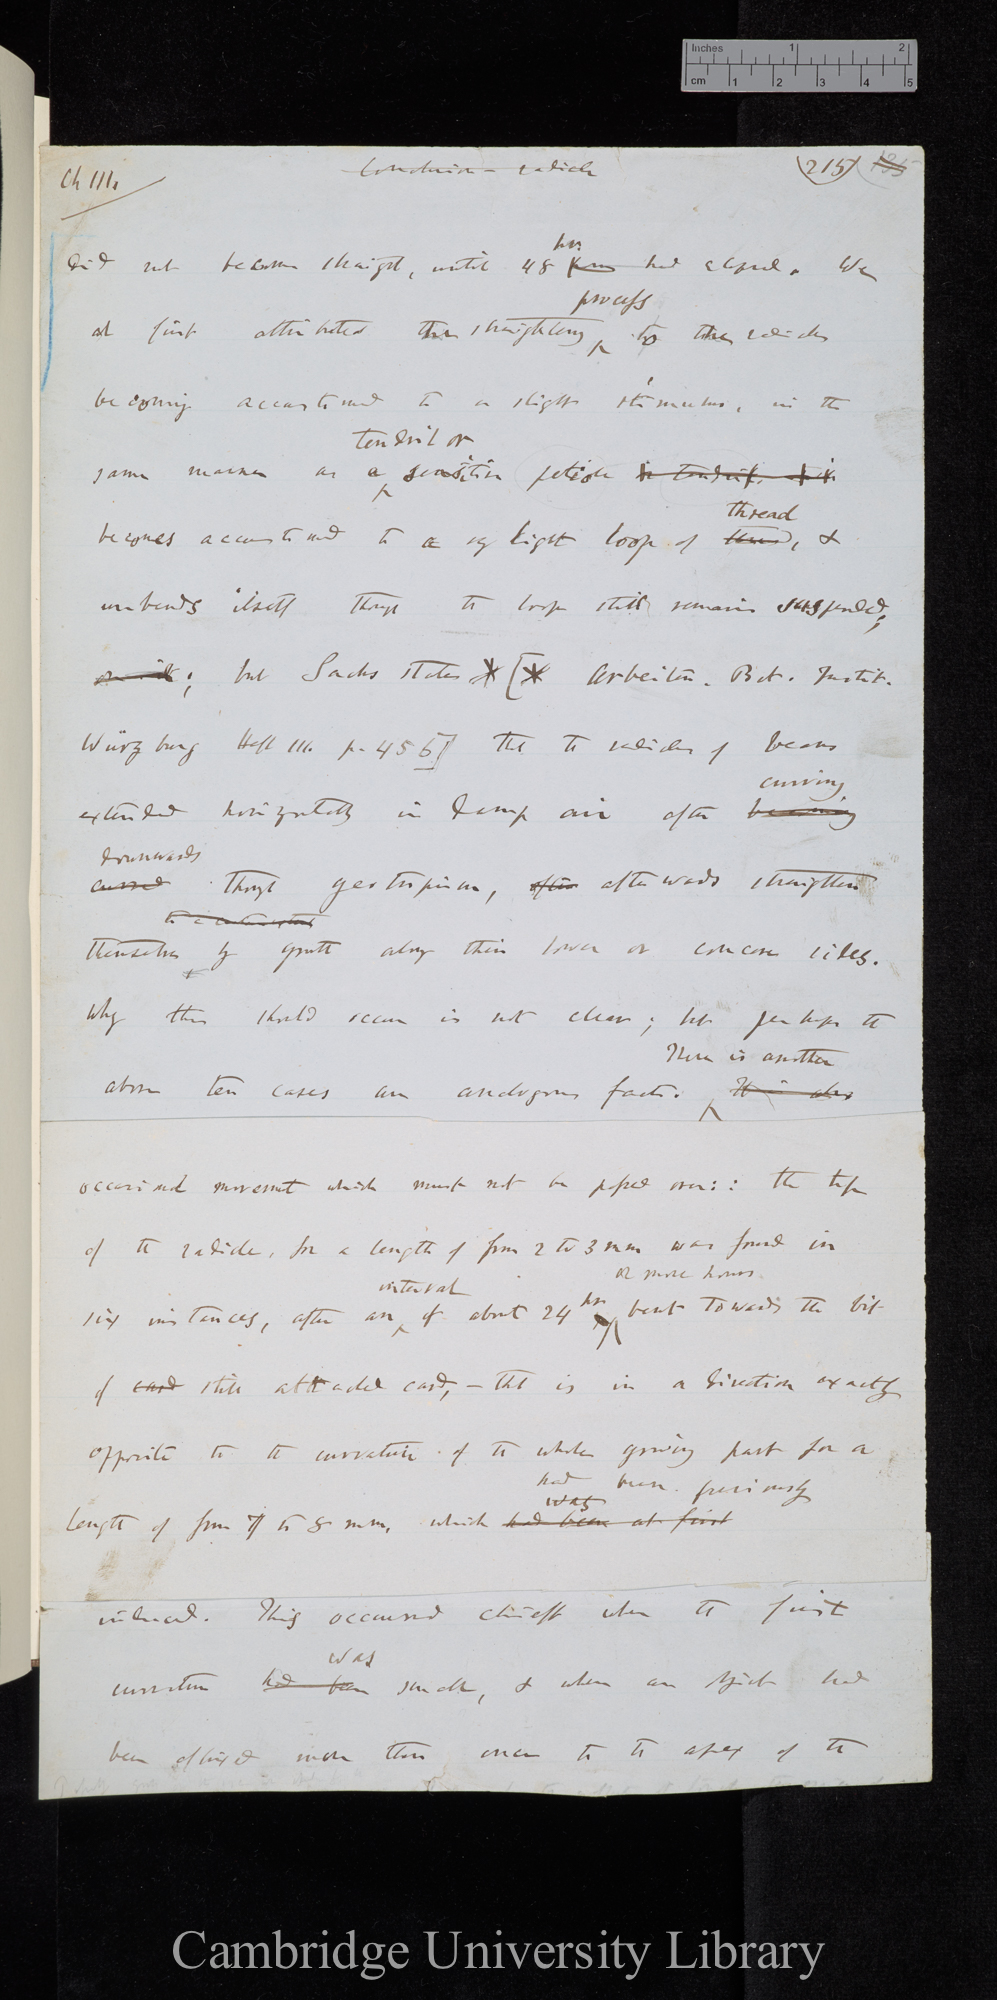 Inches 1 2
cm 1 2 3 4 5
Ch III.
Conclusion - radicle
(215) 195
did not become straight, until 48 hrs had elapsed. We
process
at first attributed this straightening to the radicles
becoming accustomed to a slight stimulus, in the
tendril or
same manner as a sensitive petiole
thread
becomes accustomed to a very light loop of thread, &
unbends itself though the loop still remains suspended;
; but Sachs states * [* Arbeiten. Bot. Instit.
Würzburg Heft III. p. 456] that the radicles of beans
curving
extended horizontally in damp air after becoming
downwards
curved through geotropism, often afterwards straighten
themselves by growth along their lower or concave sides.
Why this should occur is not clear; but perhaps the
There is another
above ten cases are analogous facts. It is also
occasional movement which must not be passed over: the tip
of the radicle, for a length of from 2 to 3 mm was found in
interval or more hours
six instances, after an of about 24 hrs bent towards the bit
of card still attached card, - that is in a direction exactly
opposite to the curvature of the whole growing part for a
had been previously
was
length of from 7 to 8 mm, which had been at first
induced. This occurred chiefly when the first
was
curvature had been small, & when an object had
been affixed more than once to the apex of the
Cambridge University Library